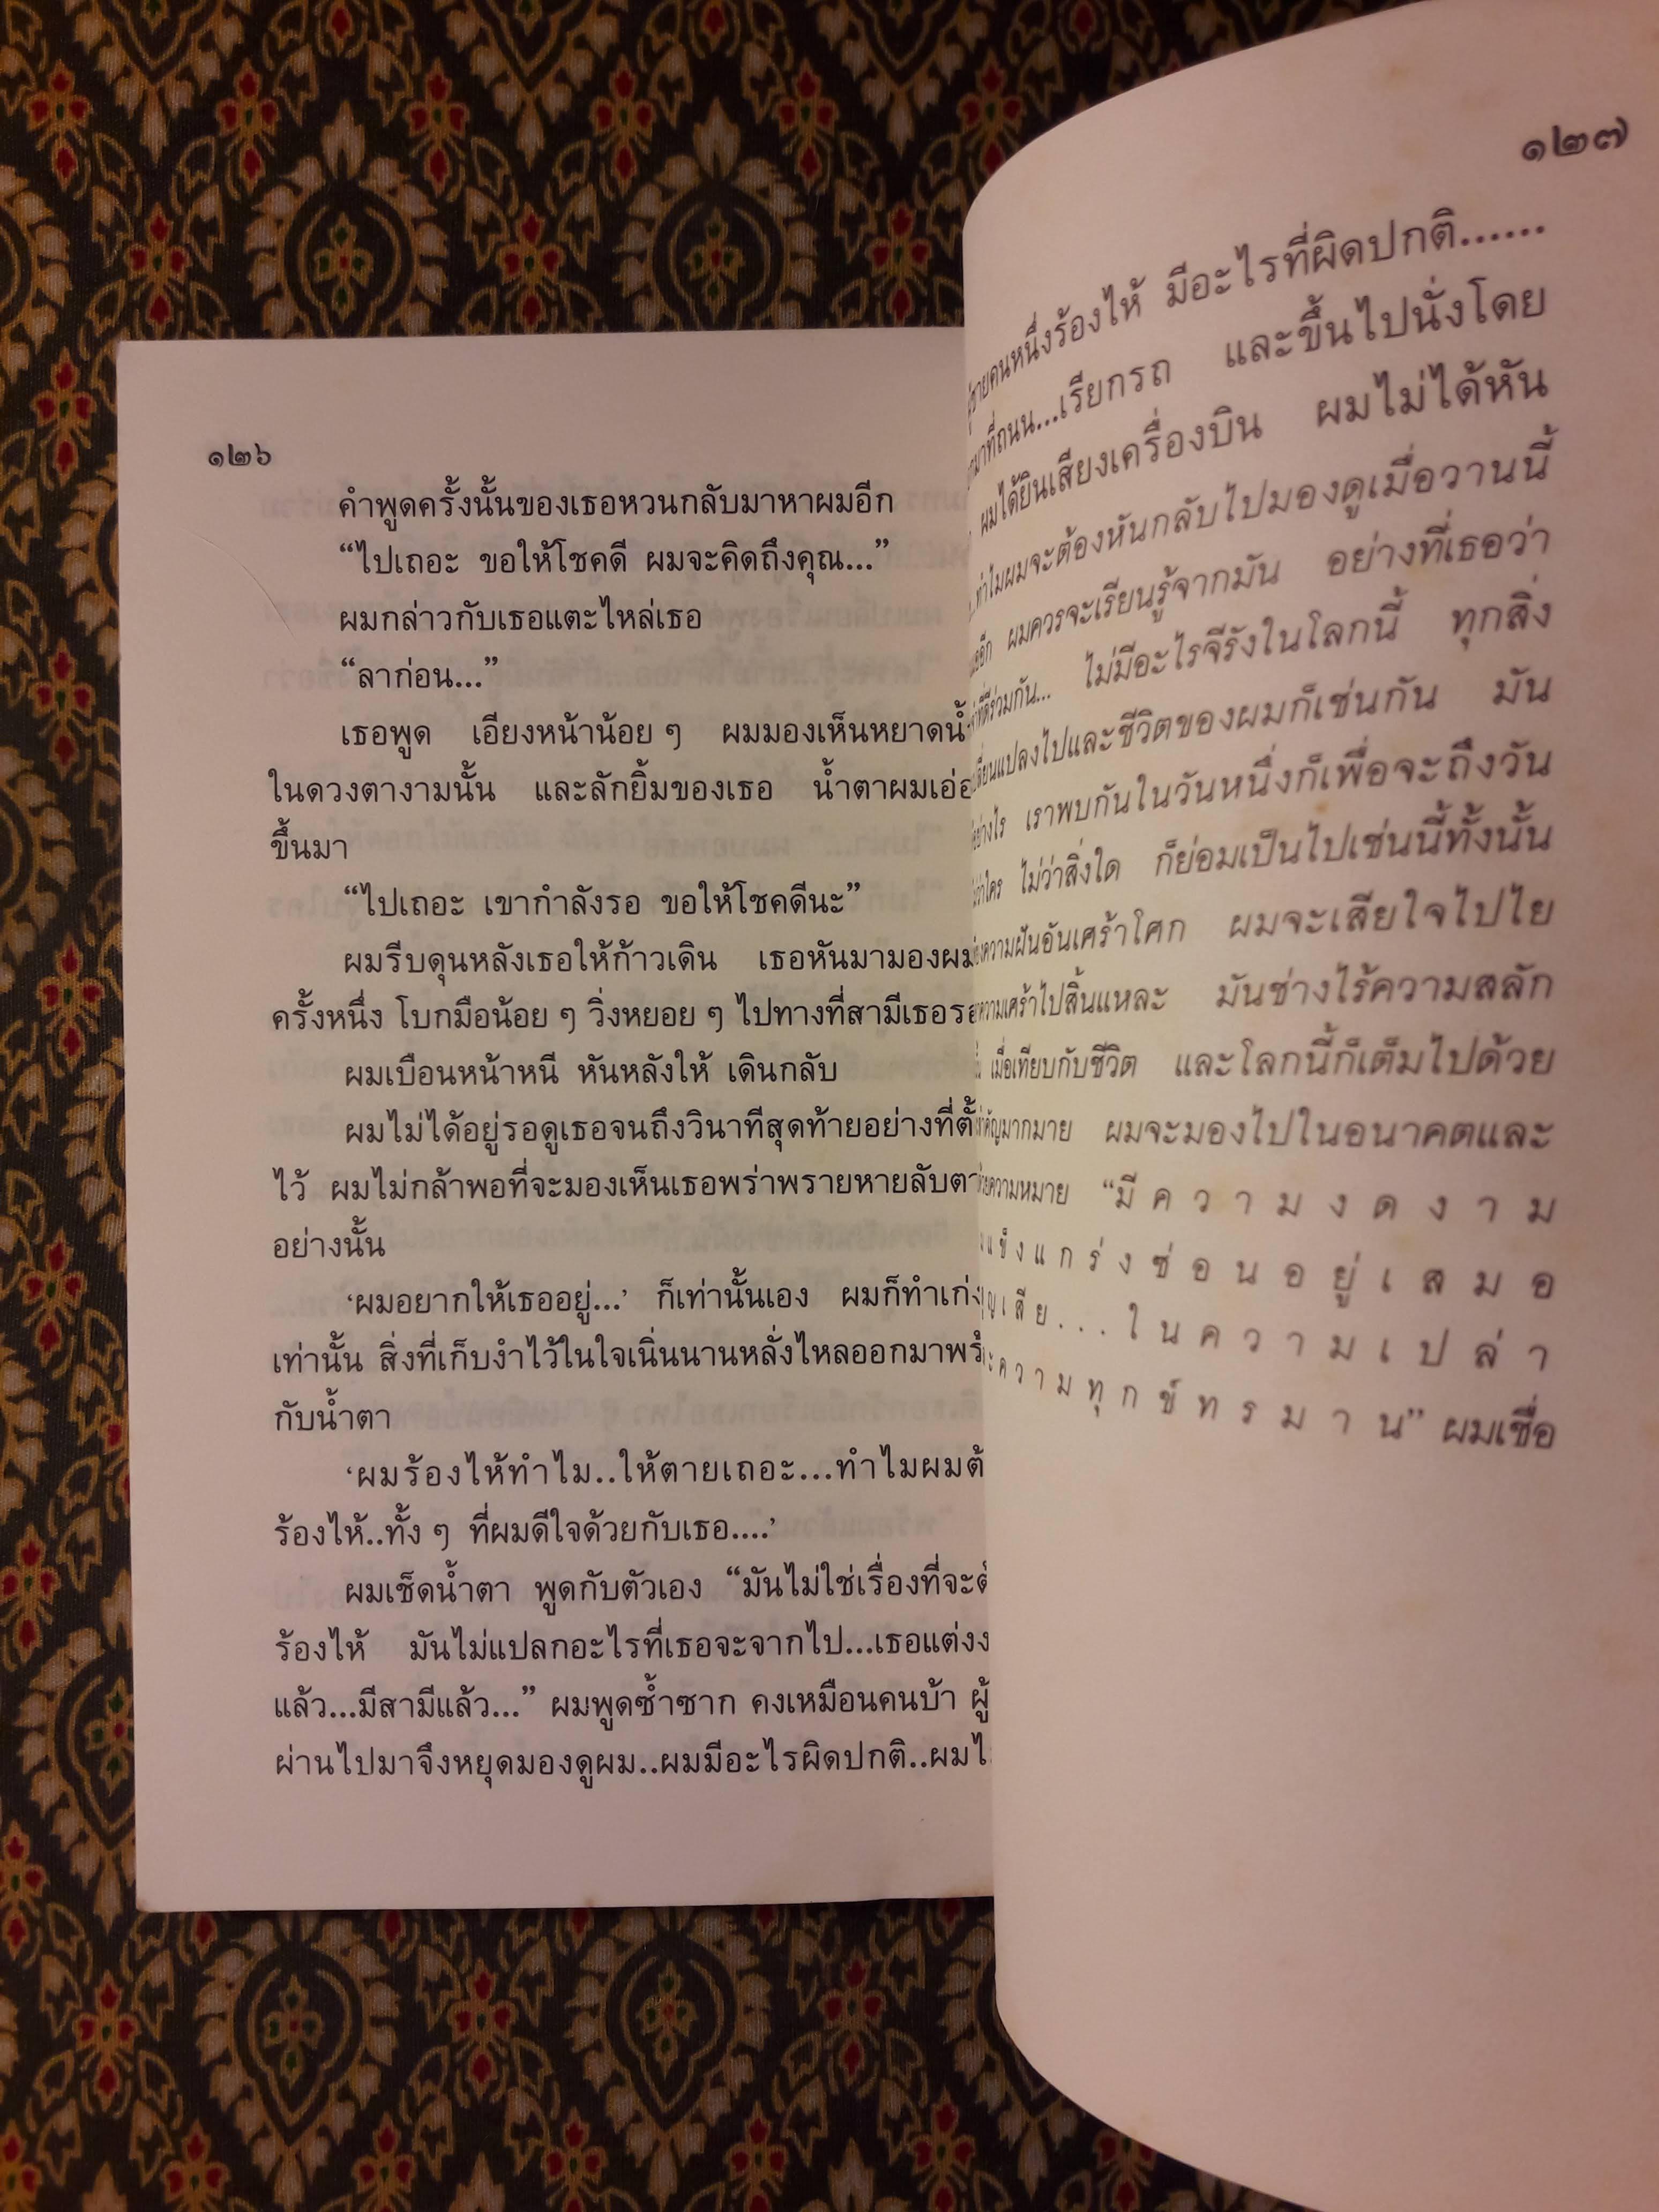 ๑๒๖
คำพูดครั้งนั้นของเธอหวนกลับมาหาผมอีก
“ไปเถอะ ขอให้โชคดี ผมจะคิดถึงคุณ...”
ผมกล่าวกับเธอแตะไหล่เธอ
“ลาก่อน...”
เธอพูด เอียงหน้าน้อย ๆ ผมมองเห็นหยาด
ในดวงตางามนั้น และลักยิ้มของเธอ น้ำตาผม
ขึ้นมา
“ไปเถอะ เขากำลังรอ ขอให้โชคดีนะ”
ผมรีบดุนหลังเธอให้ก้าวเดิน เธอหันมามองผม
ครั้งหนึ่ง โบกมือน้อย ๆ วิ่งหยอย ๆ ไปทางที่สามีเธอ
ผมเบือนหน้าหนี หันหลังให้ เดินกลับ
ผมไม่ได้อยู่รอดูเธอจนถึงวินาทีสุดท้ายอย่างที่
ไว้ ผมไม่กล้าพอที่จะมองเห็นเธอพร่าพรายหายลับ
อย่างนั้น
‘ผมอยากให้เธออยู่...’ ก็เท่านั้นเอง ผมก็ทำเก่ง
เท่านั้น สิ่งที่เก็บงำไว้ในใจเนิ่นนานหลั่งไหลออกมา
กับน้ำตา
‘ผมร้องไห้ทำไม..ให้ตายเถอะ...ทำไมผม
ร้องไห้..ทั้ง ๆ ที่ผมดีใจด้วยกับเธอ....’
ผมเช็ดน้ำตา พูดกับตัวเอง “มันไม่ใช่เรื่องที่จะ
ร้องไห้ มันไม่แปลกอะไรที่เธอจะจากไป...เธอแต่ง
แล้ว...มีสามีแล้ว...” ผมพูดซ้ำซาก คงเหมือนคนบ้า ผู้
ผ่านไปมาจึงหยุดมองดูผม..ผมมีอะไรผิดปกติ..ผม
๑๒๗
คนหนึ่งร้องไห้ มีอะไรที่ผิดปกติ......
มาที่ถนน...เรียกรถ และขึ้นไปนั่งโดย
ผมได้ยินเสียงเครื่องบิน ผมไม่ได้หัน
ทำไมผมจะต้องหันกลับไปมองดูเมื่อวานนี้
อีก ผมควรจะเรียนรู้จากมัน อย่างที่เธอว่า
ที่ดีร่วมกัน... ไม่มีอะไรจีรังในโลกนี้ ทุกสิ่ง
เปลี่ยนแปลงไปและชีวิตของผมก็เช่นกัน มัน
อย่างไร เราพบกันในวันหนึ่งก็เพื่อจะถึงวัน
ว่าใคร ไม่ว่าสิ่งใด ก็ย่อมเป็นไปเช่นนี้ทั้งนั้น
ความฝันอันเศร้าโศก ผมจะเสียใจไปไย
ความเศร้าไปสิ้นแหละ มันช่างไร้ความสลัก
เมื่อเทียบกับชีวิต และโลกนี้ก็เต็มไปด้วย
สำคัญมากมาย ผมจะมองไปในอนาคตและ
ความหมาย “มี ค ว า ม ง ด ง า ม
แ ข็ ง แ ก ร่ ง ซ่ อ น อ ยู่ เ ส ม อ
เ สี ย . . . ใ น ค ว า ม เ ป ล่ า
ค ว า ม ทุ ก ข์ ท ร ม า น” ผมเชื่อ